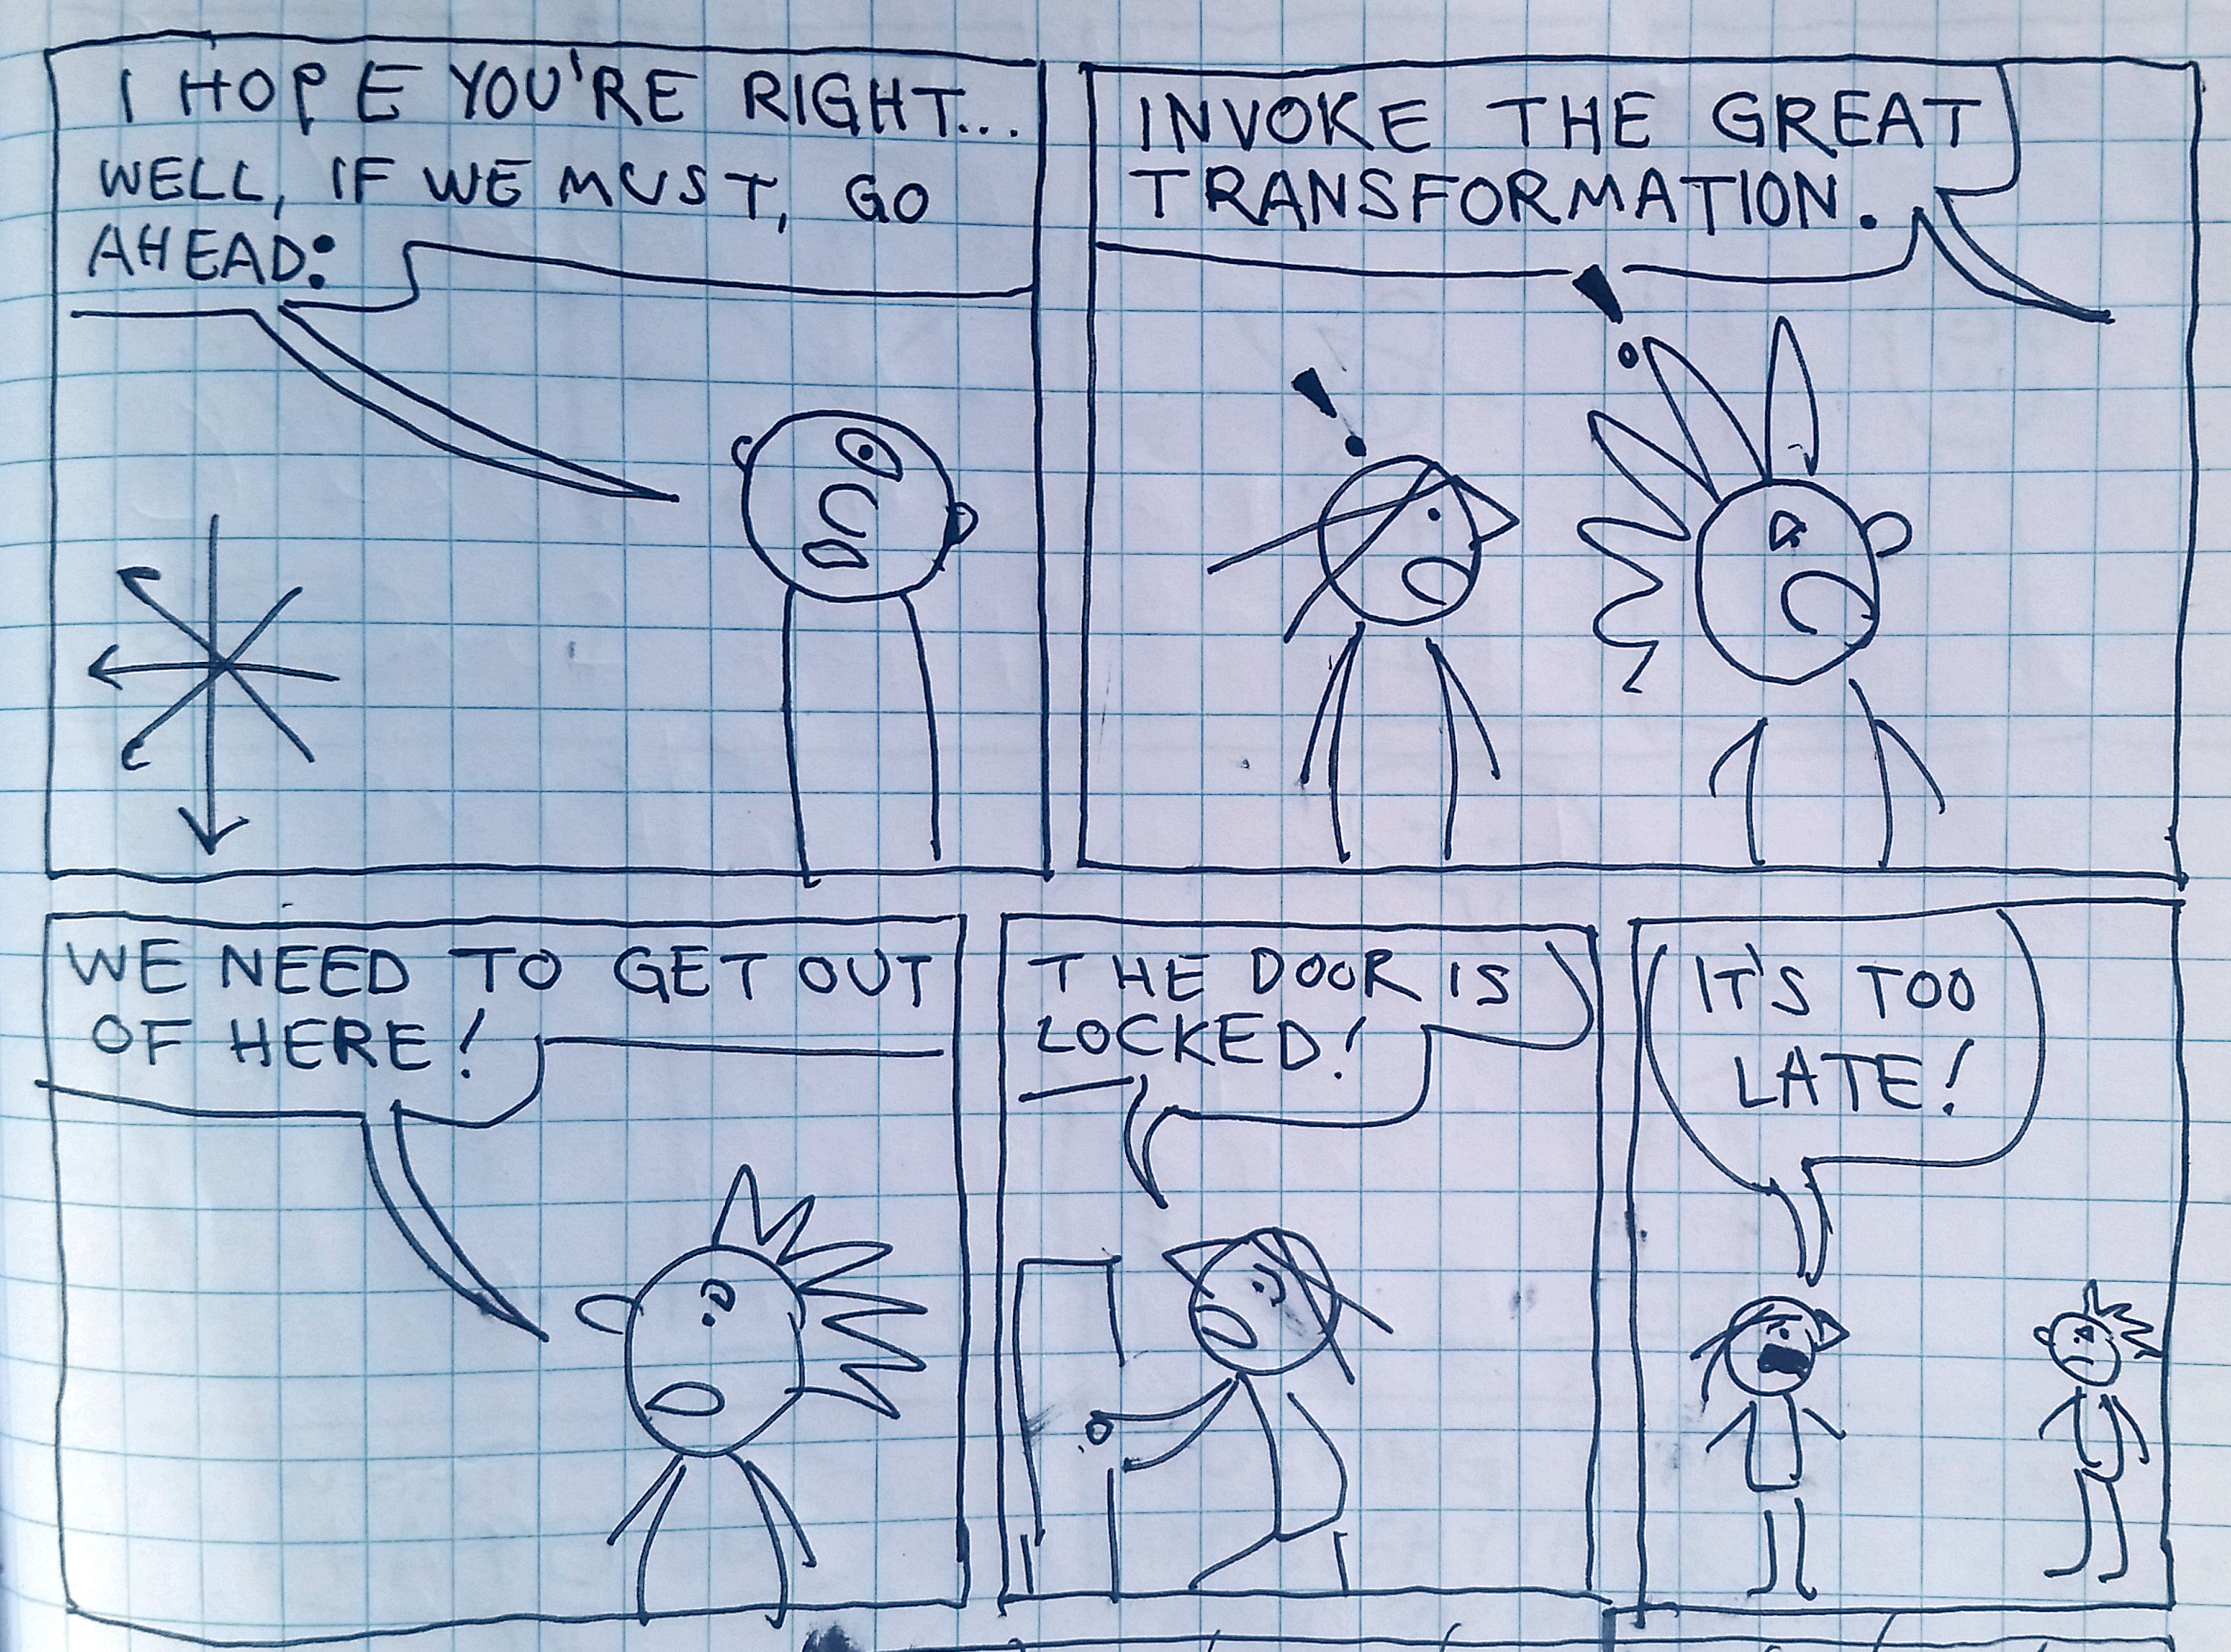 I HOPE YOU'RE RIGHT...
WELL, IF WE MUST, GO
AHEAD:
INVOKE THE GREAT
TRANSFORMATION.
WE NEED TO GET OUT
OF HERE!
THE DOOR IS
LOCKED!
IT'S TOO
LATE!